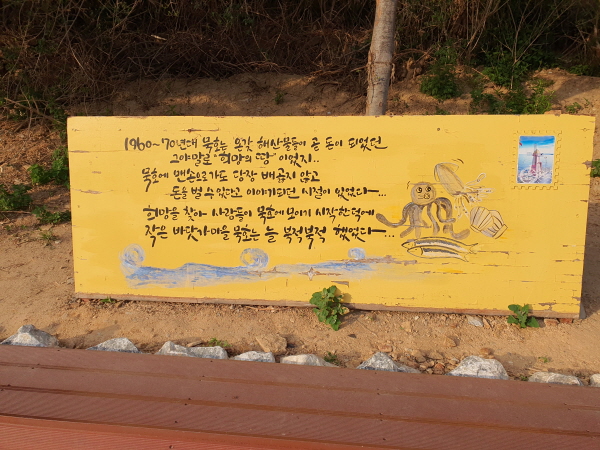 1960~70년대 묵호는 온갖 해산물들이 곧 돈이 되었던
그야말로 "희망의 땅" 이었지..
묵호에 맨손으로가도 당장 배곯지 않고
돈을 벌 수 있다고 이야기되던 시절이 있었다...
희망을 찾아 사람들이 묵호에 모이기 시작한 덕에
작은 바닷가마을 묵호는 늘 북적북적 했었다...